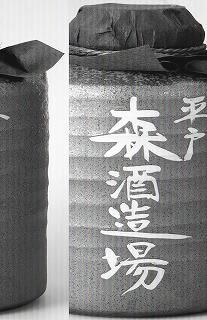 平戸
森酒造場